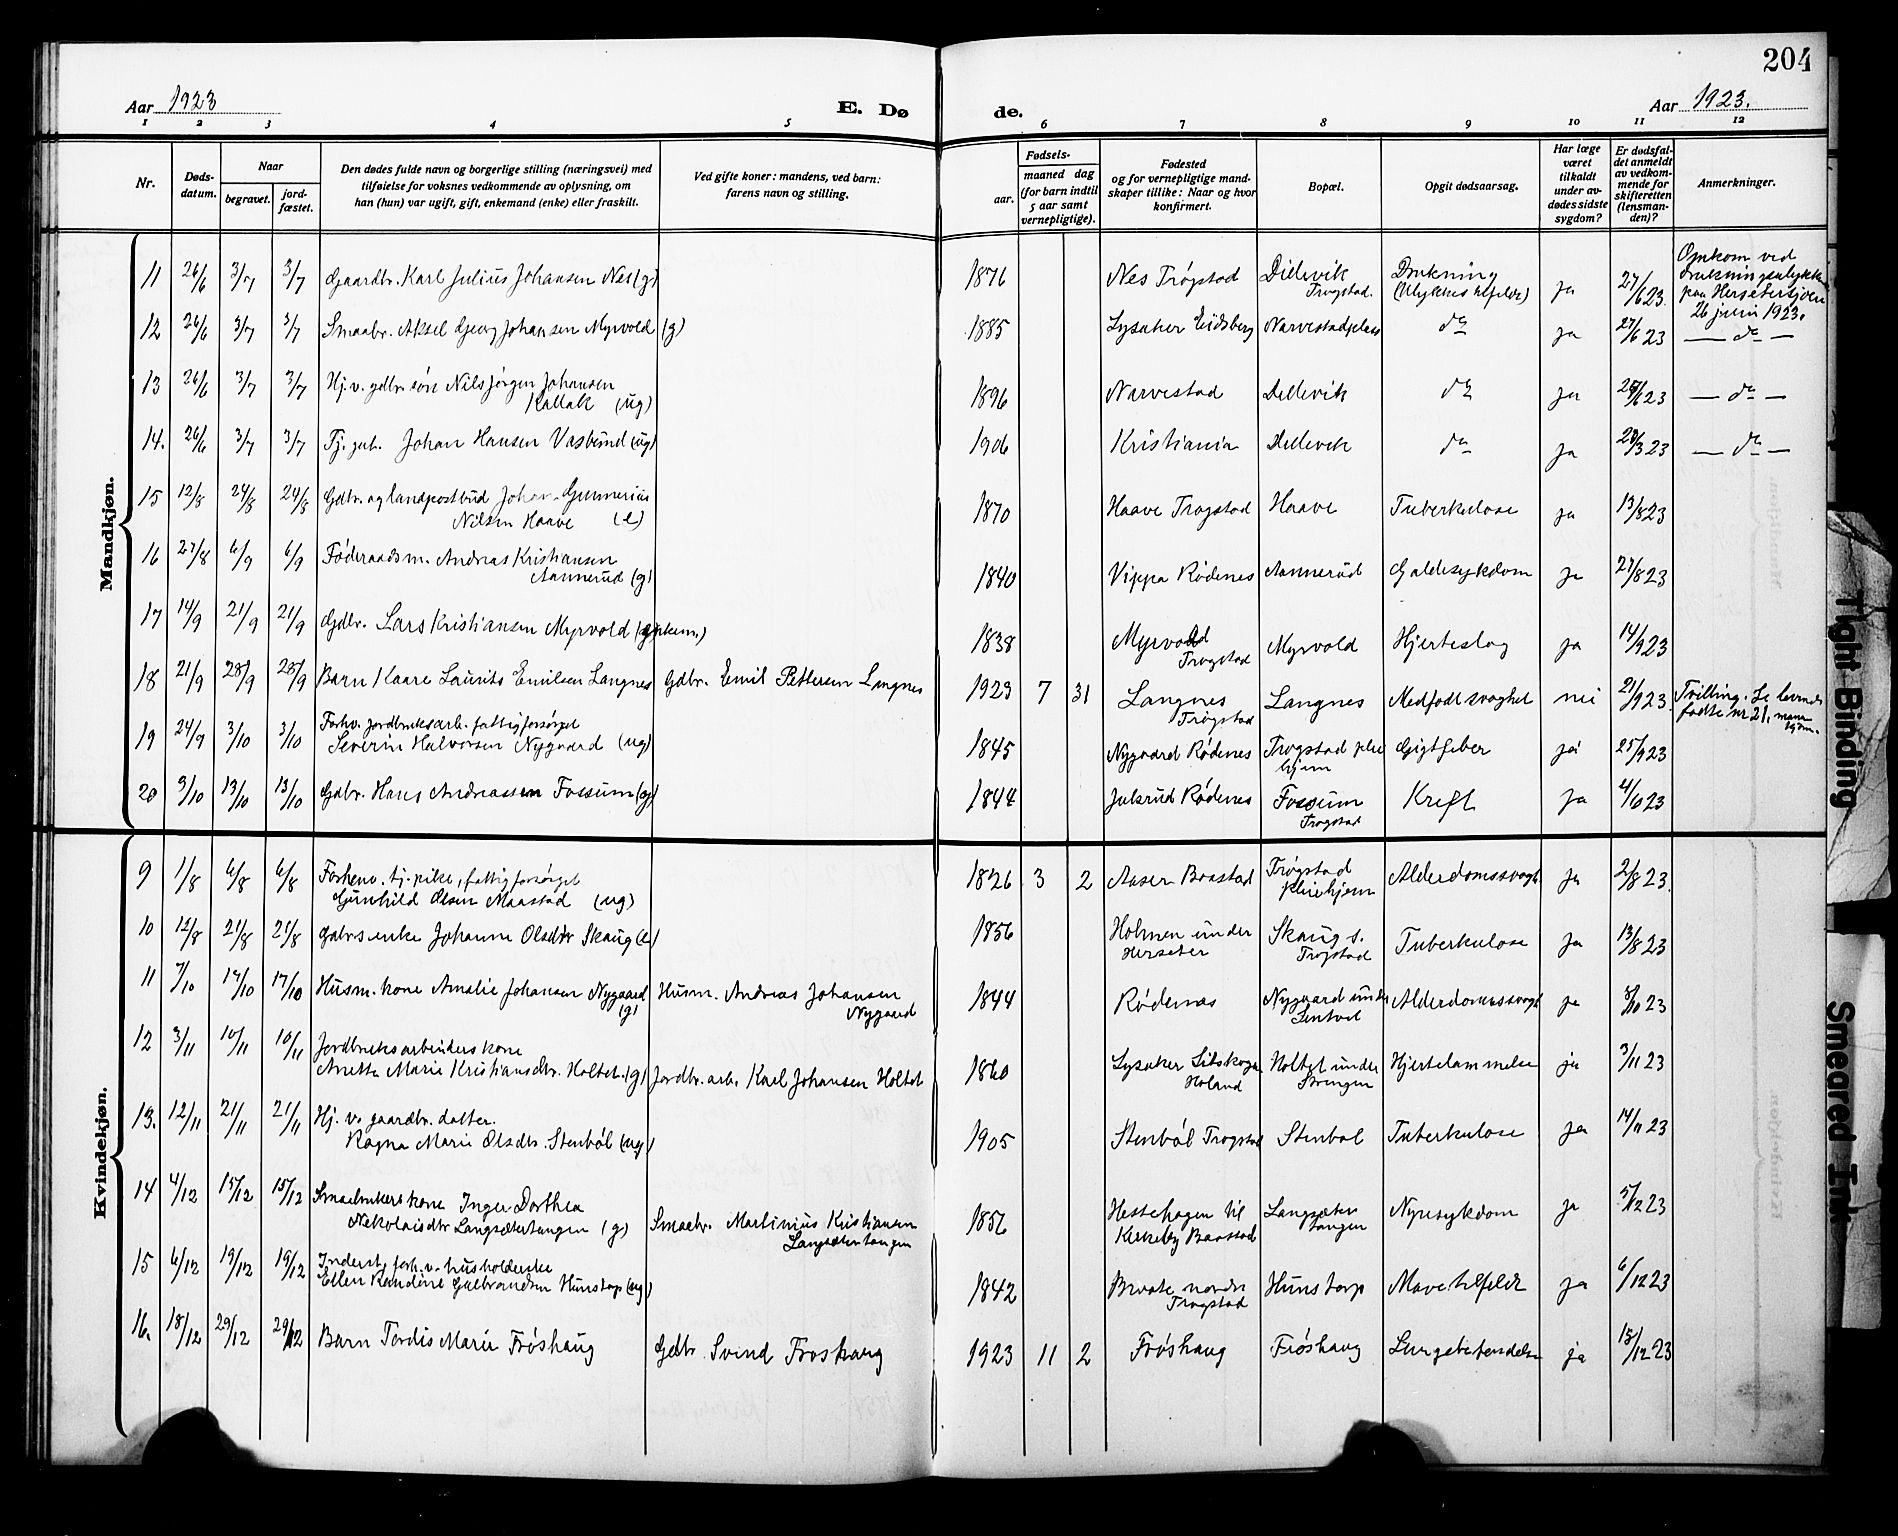 204
Aar 1923
E. Dø de.
Aar 1923.
1 2 3 4 5 6 7 8 9 10 11 12
Nr.
Døds-
datum.
Naar
begravet.
jord-
fæstet.
Den dødes fulde navn og borgerlige stilling (næringsvei) med
tilføielse for voksnes vedkommende av oplysning, om
han (hun) var ugift, gift, enkemand (enke) eller fraskilt.
Ved gifte koner: mandens, ved barn:
farens navn og stilling.
Fødsels-
aar.
maaned dag
(for barn indtil
5 aar samt
vernepligtige).
Fødested
og for vernepligtige mand-
skaper tillike: Naar og hvor
konfirmert.
Bopæl.
Opgit dødsaarsag.
Har læge
været
tilkaldt
under av-
dødes sidste
sygdom?
Er dødsfal-
det anmeldt
av vedkom-
mende for
skifteretten
(lensman-
den)?
Anmerkninger.
Mandkjøn.
11 26/6 3/7 3/7 Gaardbr. Karl Julius Johansen Nes (g) 1876 Nes Trøgstad Dillevik Trøgstad. Drukning (Ulykkestilfelde) ja 27/6 23. Omkom ved drukningsulykke paa Hersetersjøen 26 juni 1923.
12 26/6 3/7 3/7 Smaabr. Aksel Georg Johansen Myrvold (g) 1885 Lysaker Eidsberg Narvestadplass do ja 27/6 23 — do —
13 26/6 3/7 3/7 Hj. v. gdbr. søn Nils Jørgen Johansen Kallak (ug) 1896 Narvestad Dillevik do ja 6 23 — do —
14. 26/6 3/7 3/7 Tj. gut. Johan Hansen Vasbund (ug) 1906 Kristiania Dillevik do ja 23 — do —
15 12/8 24/8 24/8 Gdbr. og landpostbud Johan Gunnerius Nilsen Haave (e) 1870 Haave Trøgstad Haave Tuberkulose ja 13/8 23
16 27/8 6/9 6/9 Føderaadsm. Andreas Kristiansen Aannerud (g) 1840 Vippa Rødenes Aannerud Galdesykdom ja 27/8 23
17 14/9 21/9 21/9 Gdbr. Lars Kristiansen Myrvold 1838 Myrvold Trøgstad Myrvold Hjerteslag ja 14/9 23
18 21/9 28/9 28/9 Barn Kaare Laurits Emilsen Langnes Gdbr. Emil Pettersen Langnes 1923 7 31 Langnes Trøgstad Langnes Medfødt svaghet nei 21/9 23 Tvilling. Se levende fødte nr 21, mandkjøn.
19 24/9 3/10 3/10 Forhv. jordbruksarb. fattigforsørget Severin Halvorsen Nygaard (ug) 1845 Nygaard Rødenes Trøgstad pleiehjem Gigtfeber ja 25/9 23
20 3/10 13/10 13/10 Gdbr. Hans Andreassen Fossum (g) 1844 Julsrud Rødenes Fossum Trøgstad Kreft ja 23
Kvindekjøn.
9 1/8 6/8 6/8 Forhenv. tj. pike, fattigforsørget Gunhild Olsen Maastad (ug) 1826 3 2 Aaser Baastad Trøgstad pleiehjem Alderdomssvagh ja 2/8 23.
10 12/8 21/8 21/8 Gdbrs enke Johanne Olsdtr Skaug (e) 1856 Holmen under Herseter Skaug s. Trøgstad Tuberkulose ja 13/8 23
11 7/10 17/10 17/10 Husm. kone Amalie Johansen Nygaard (g) Husm. Andreas Johansen Nygaard 1844 Rødenes Nygaard under Sentvet Alderdomssvagh ja 8/10 23
12 3/11 10/11 10/11 Jordbruksarbeiders kone Anette Marie Kristiansdtr. Holtet. (g) Jordbr. arb. Karl Johansen Holtet 1860 Lysaker Setskogen Høland Holtet under Strengen Hjertelammelse ja 3/11 23
13. 12/11 21/11 21/11 Hj. v. gaardbr. datter. Ragna Marie Olsdtr. Stenbøl (ug) 1905 Stenbøl Trøgstad Stenbøl Tuberkulose ja 14/11 23
14 4/12 15/12 15/12 Smaabrukers kone Inger Dorthea Nikolaisdtr Langsætertangen (g) Smaabr. Martinius Kristiansen Langsætertangen 1856 Hestehagen til Kirkeby Baastad Langsætertangen Nyresykdom ja 5/12 23
15 6/12 19/12 19/12 Inderst, forh. v. husholderske Ellen Randine Gulbrandsen Hunstorp (ug) 1842 Braate nordre Trøgstad Hunstorp Mavetilfelde ja 6/12 23
16. 18/12 29/12 29/12 Barn Tordis Marie Frøshaug Gdbr Svend Frøshaug 1923 11 2 Frøshaug Frøshaug Lungebetendelse ja 18/12 23
Tight Binding
Smeared Ink